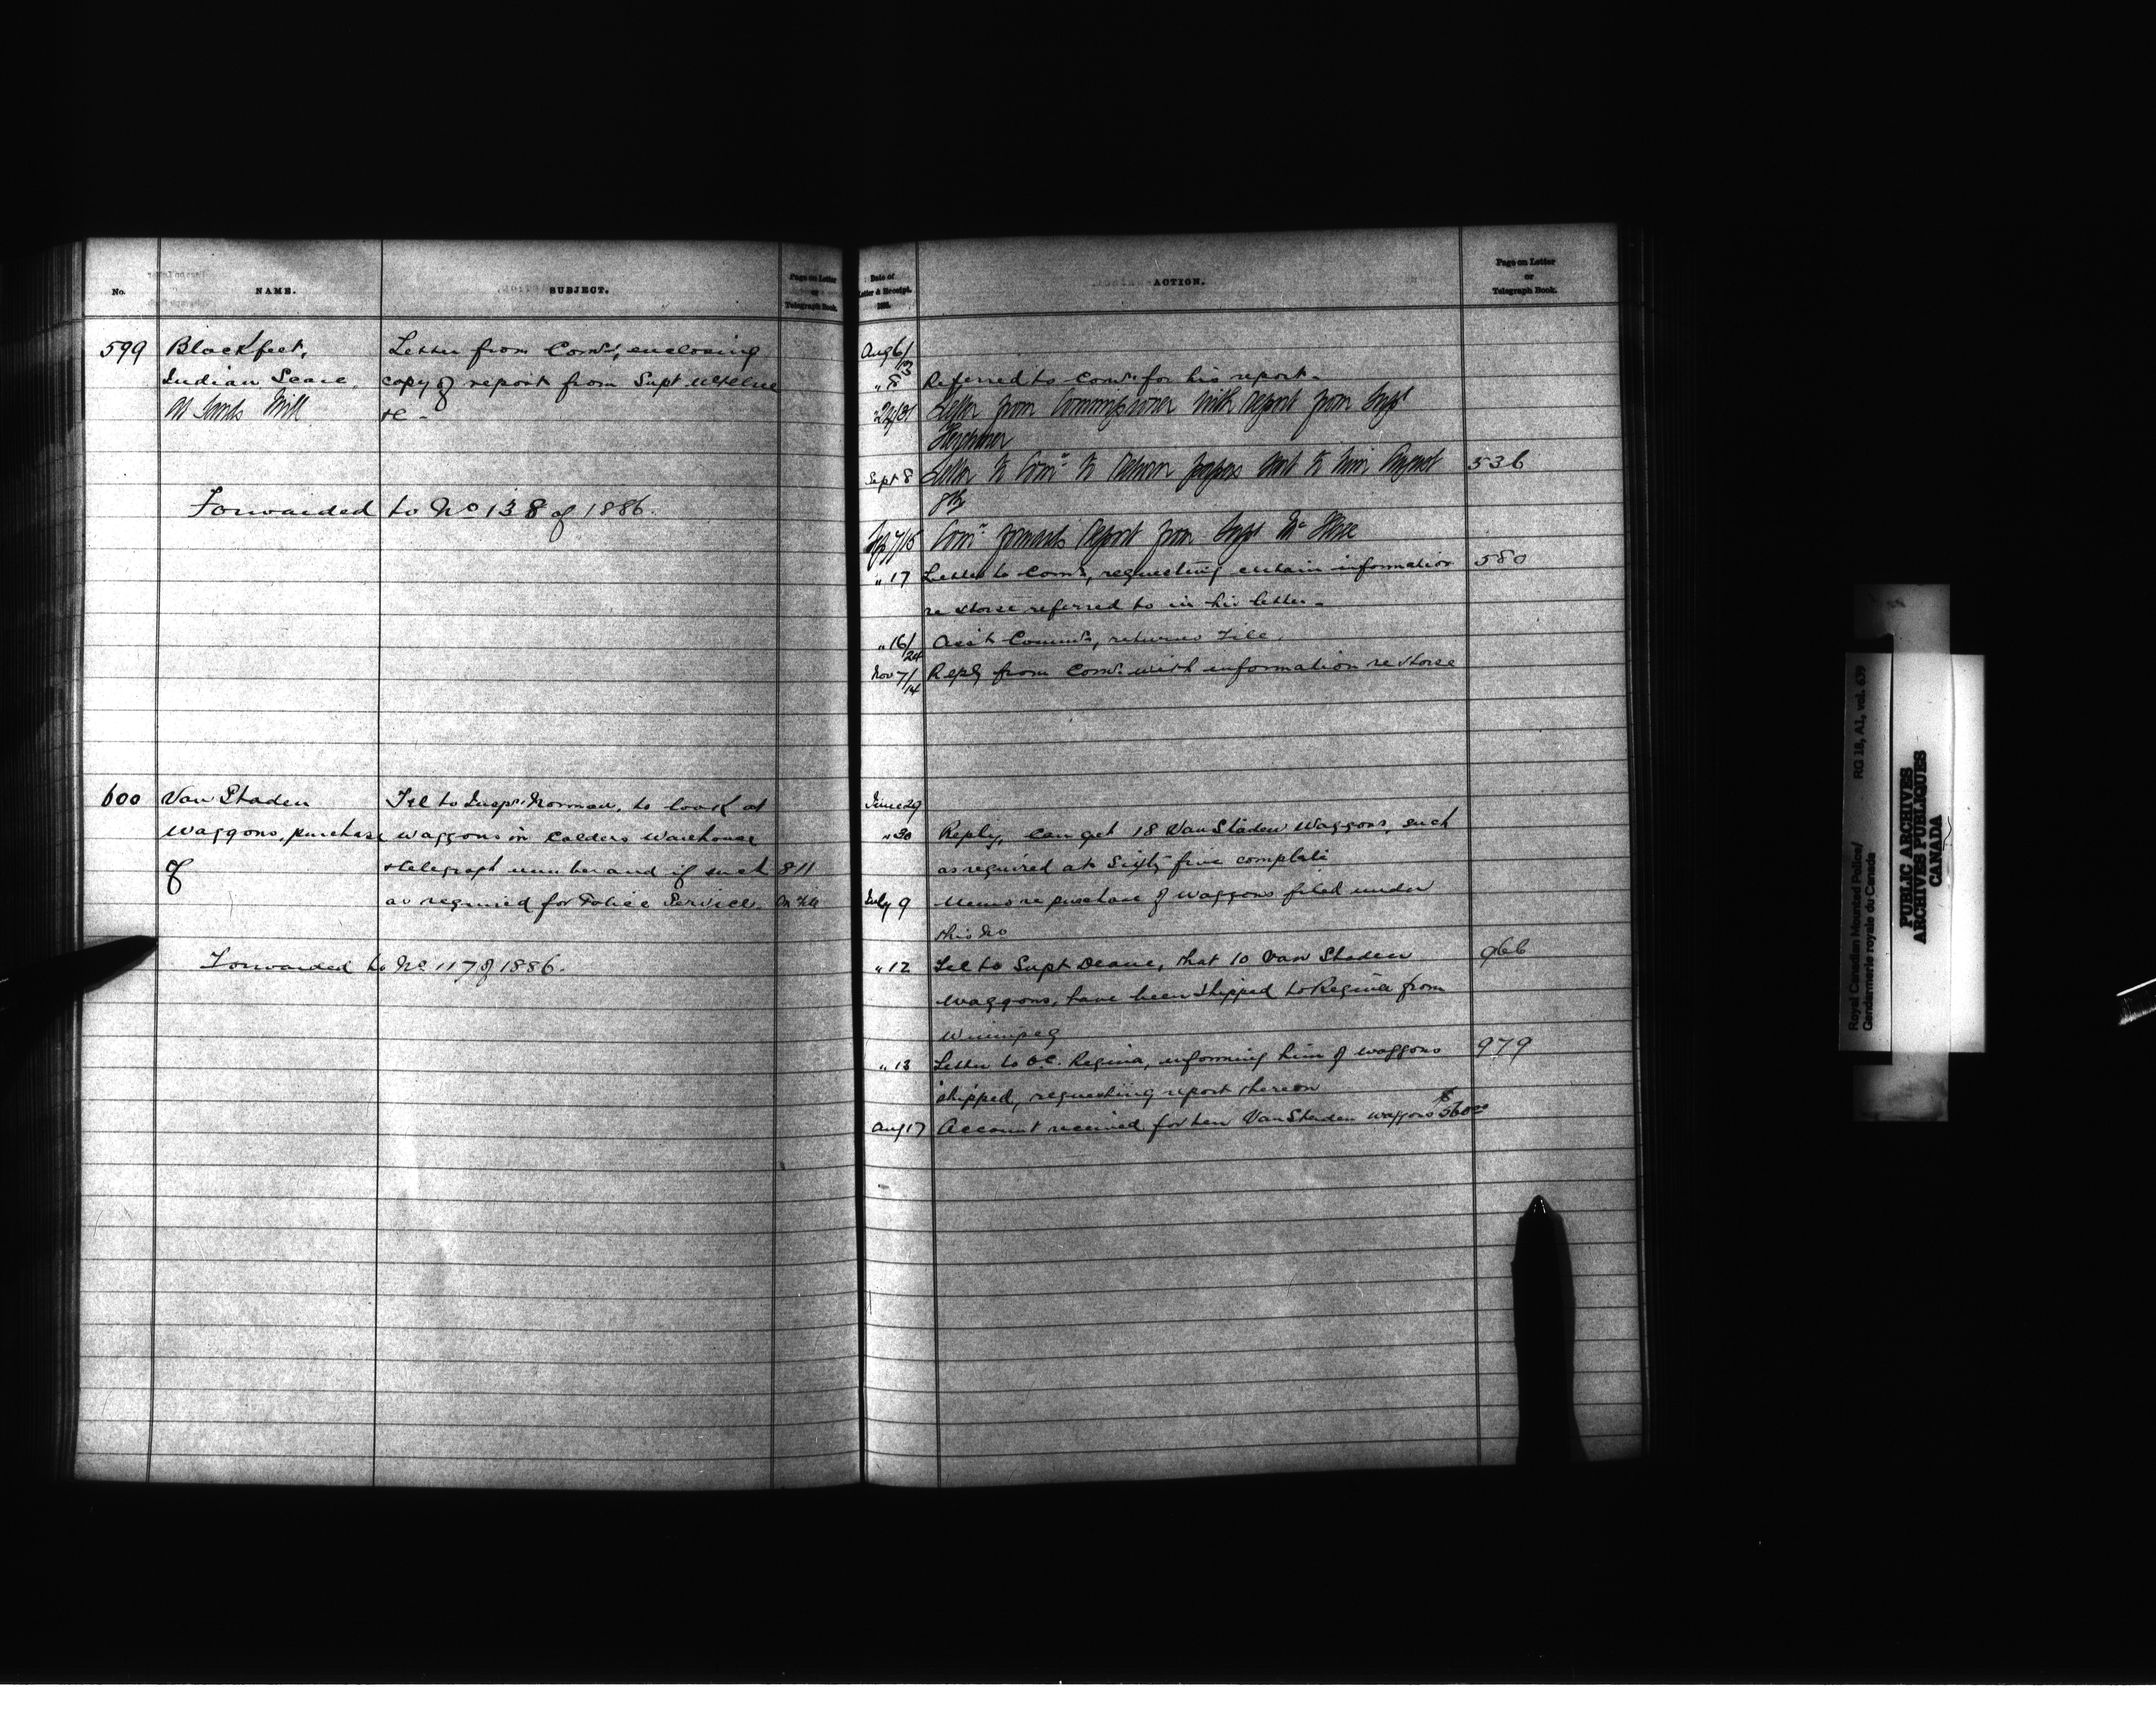 No.
NAME.
SUBJECT.
Page on Letter
or
Telegraph Book.
599 Blackfeet, Letter from Comr, enclosing
Indian Scare, copy of report from Supt McIllree
at Mill &c -
Forwarded to No 138 of 1886.
600 Van Staden Tel to Inspr. Norman, to look at
Waggons, purchase waggons in Calders Warehouse
of & telegraph number and if such 811
as required for Police Service. On File
Forwarded to No 117 of 1886.
Date of
Letter & Receipt.
ACTION.
Page on Letter
or
Telegraph Book.
Aug 6/13
" Referred to Comr. for his report -
" 24/31 Letter from Commissioner with report from Supt
Herchmer
Sept 8 Letter to Comr to return papers sent to him August 536
8th
Sep 7/15 Comr forwards report from Supt
" 17 Letter to Comr, requesting certain information 580
re horse referred to in his letter -
" 16/24 Asst Commr, returns File.
Nov 7/14 Reply from Comr. with information re horse
June 29
" 30 Reply, Can get 18 Van Staden Waggons, such
as required at Sixty five complete
July 9 Memo re purchase of waggons filed under
this No
" 12 Tel to Supt Deane, that 10 Van Staden 966
Waggons, have been shipped to Regina from
Winnipeg
" 13 Letter to O.C. Regina, informing him of waggons 979
shipped, requesting report thereon
Aug 17 Account received for ten Van Staden waggons $560.00
Royal Canadian Mounted Police/
Gendarmerie royale du Canada
RG 18, A1, vol. 639
PUBLIC ARCHIVES
ARCHIVES PUBLIQUES
CANADA